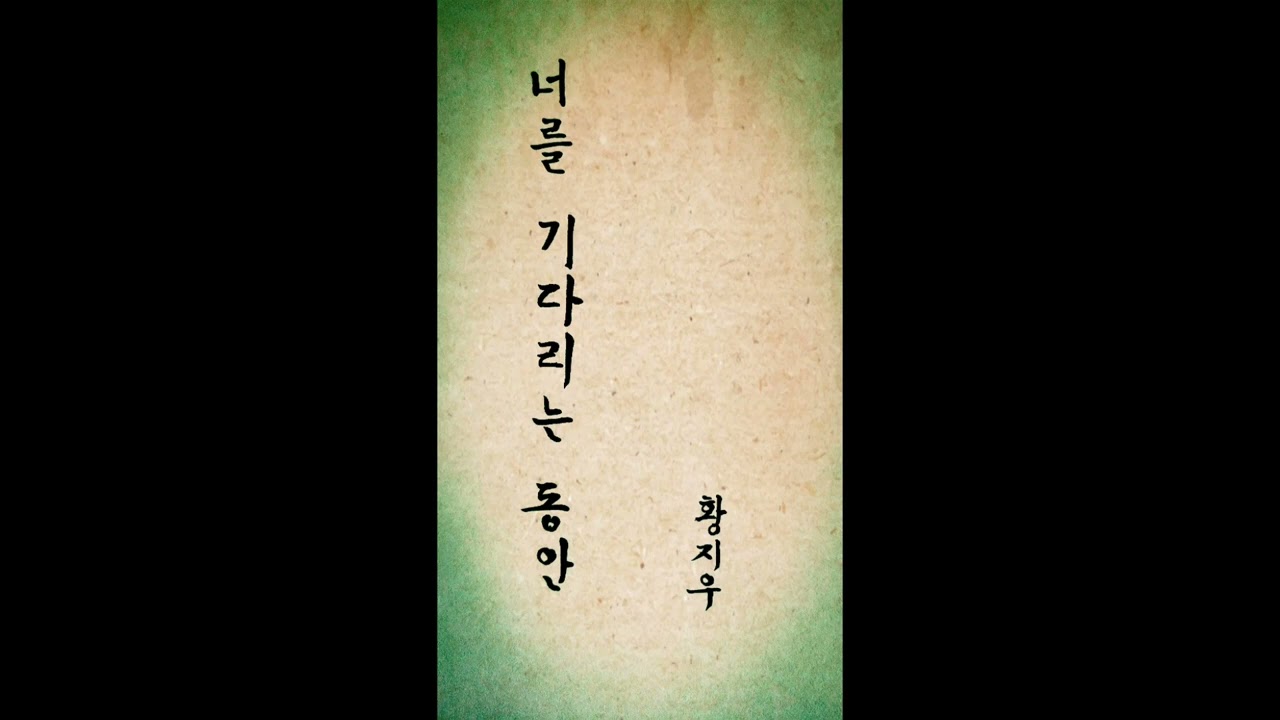 너를 기다리는 동안
황지우